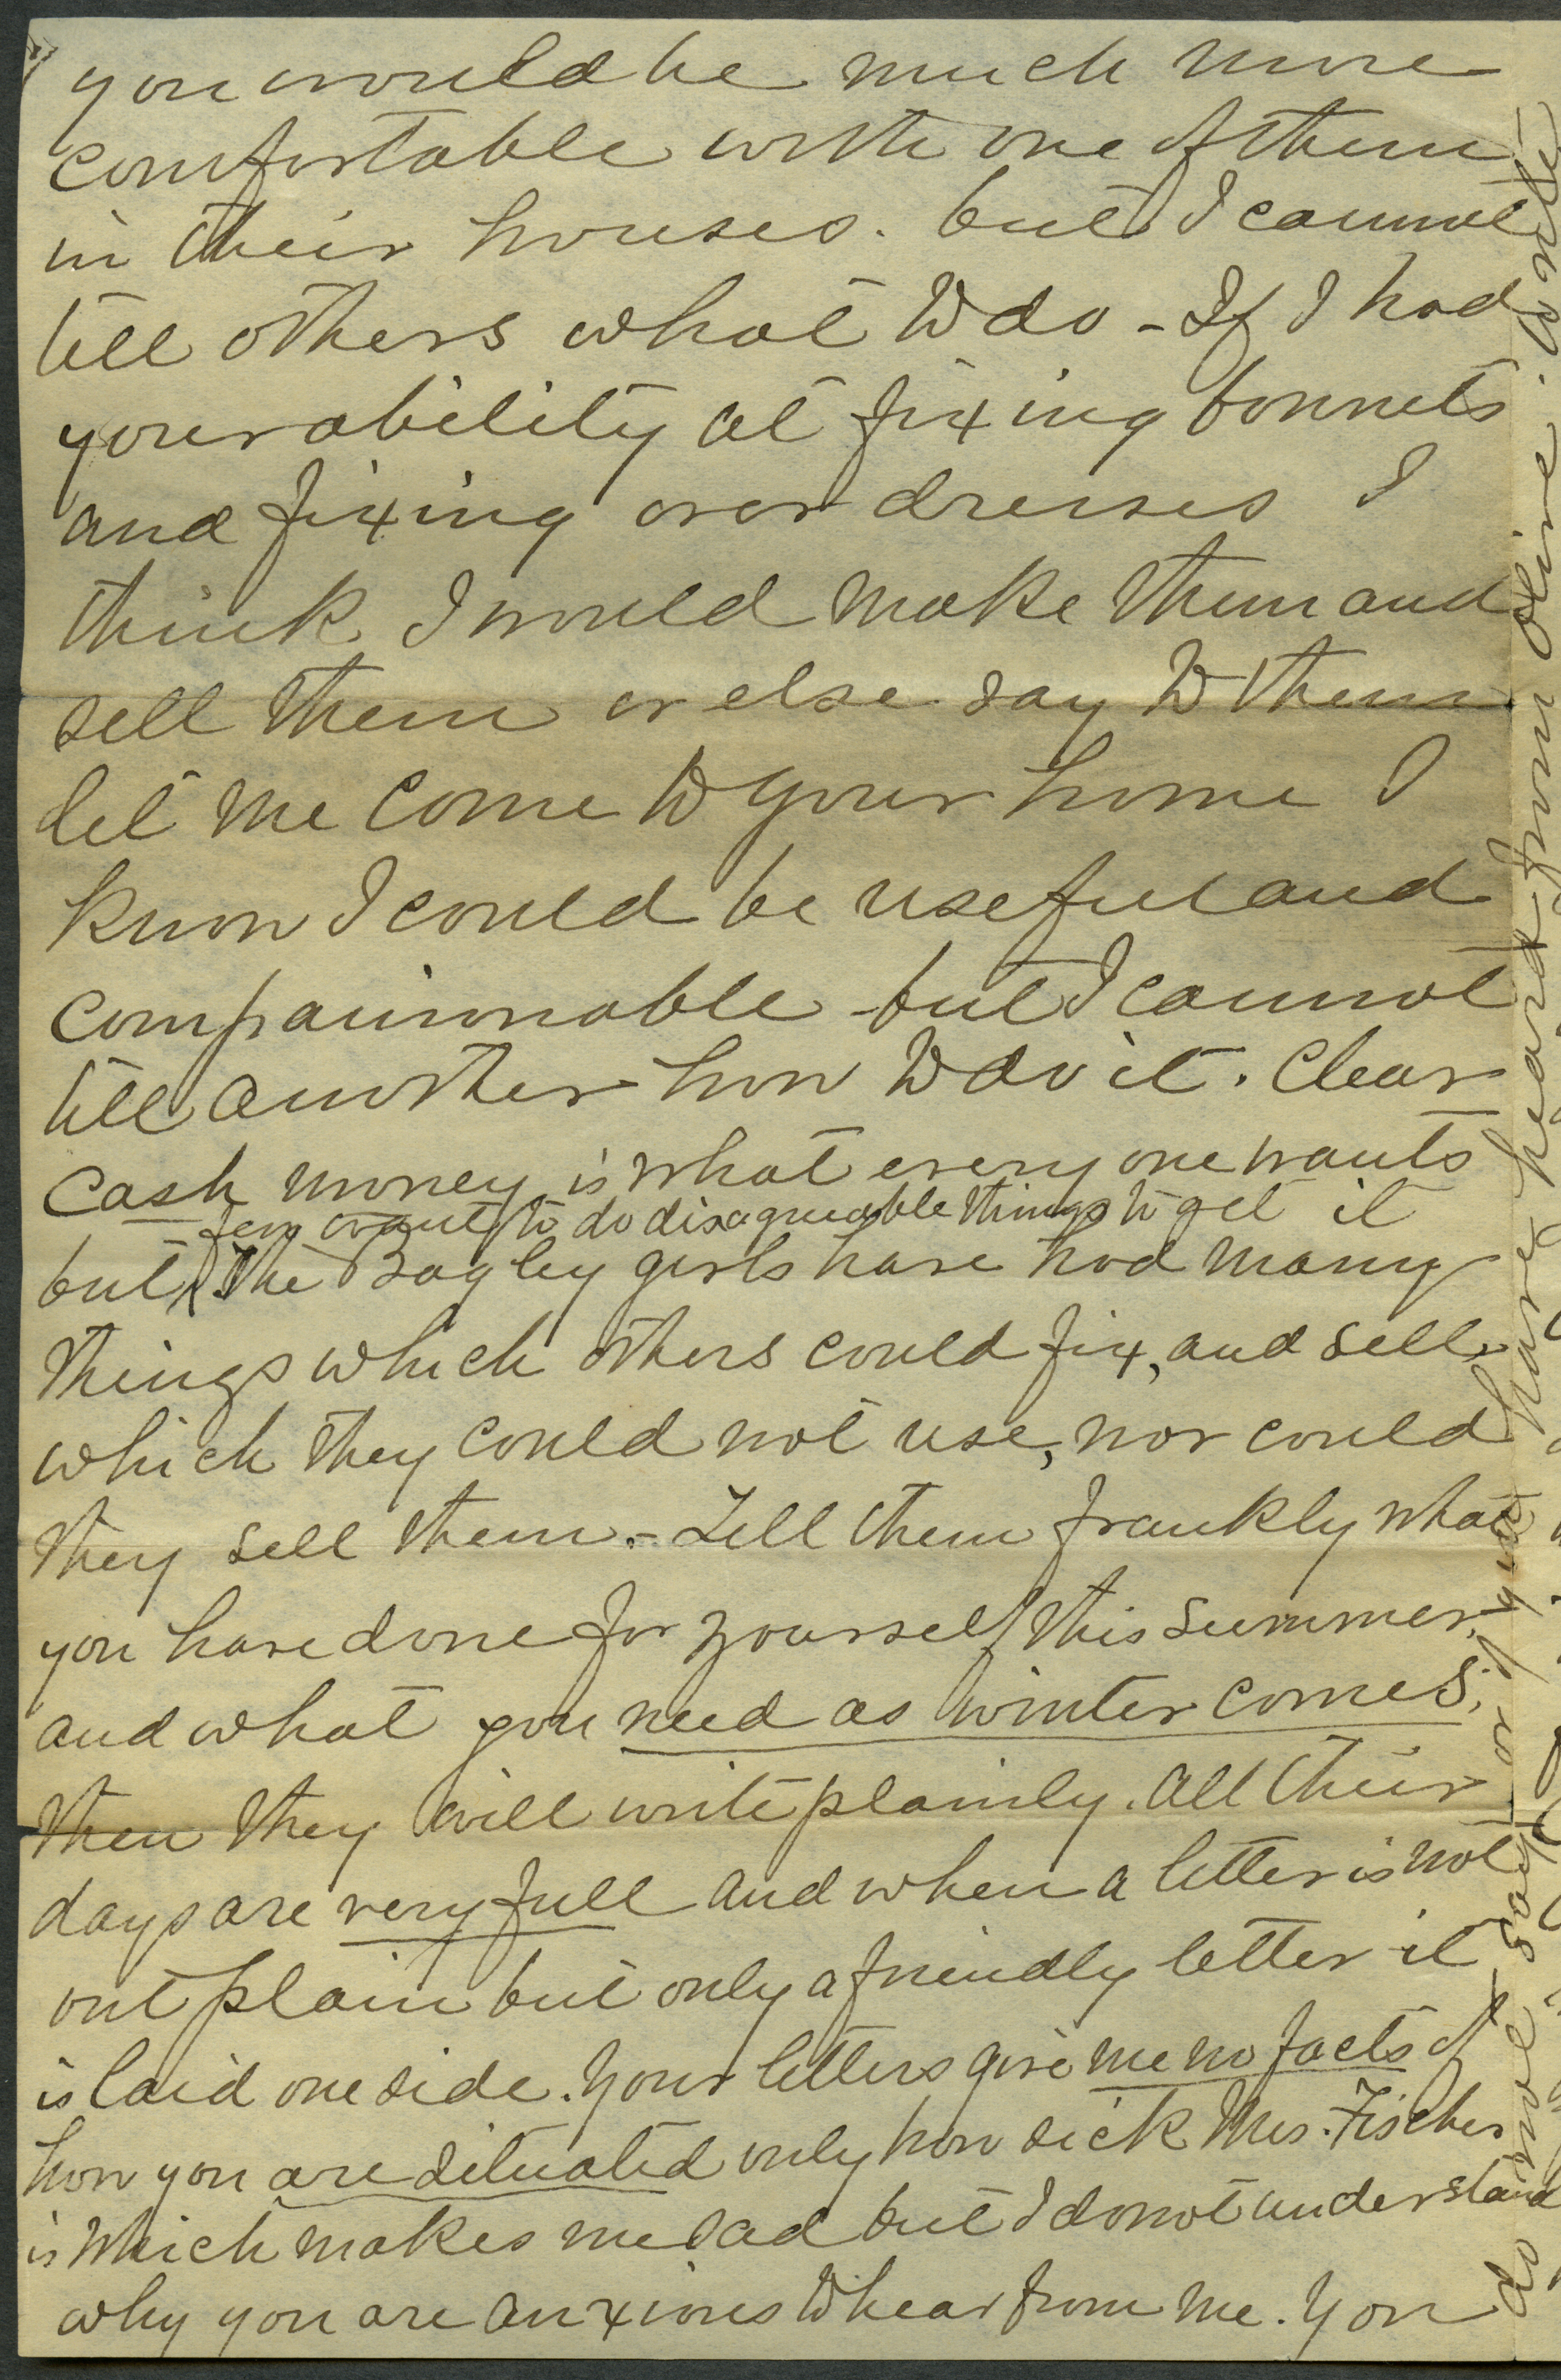 you would be much more
comfortable with one of them
in their houses. but I cannot
tell others what to do - If I had
your ability at fixing bonnets
and fixing over dresses I
think I would make them and
sell them or else say to them
let me come to your home I
know I could be useful and
companionable - but I cannot
tell another how to do it. Clear
cash money is what every one wants
few want to do disagreeable things to get it
but The Bagley girls have had many
things which others could fix, and sell,
which they could not use, nor could
they sell them. - Tell them frankly what
you have done for yourself this summer,
and what you need as winter comes;
then they will write plainly. All their
days are very full and when a letter is not
out plain but only a friendly letter it
is laid one side. Your letters give me no facts of
how you are situated only how sick Mrs. Fischer
is which makes me sad but I do not understand
why you are anxious to hear from me. You
do not say or if you have heard from Olive. write